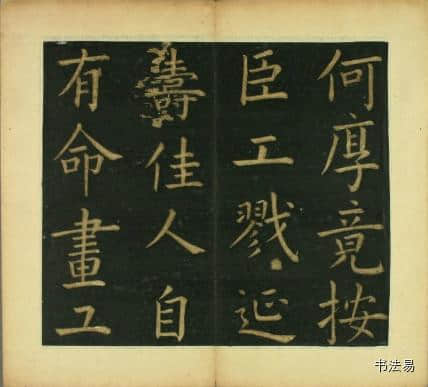 何厚竟按
臣工戮延
壽佳人自
有命畫工
书法易